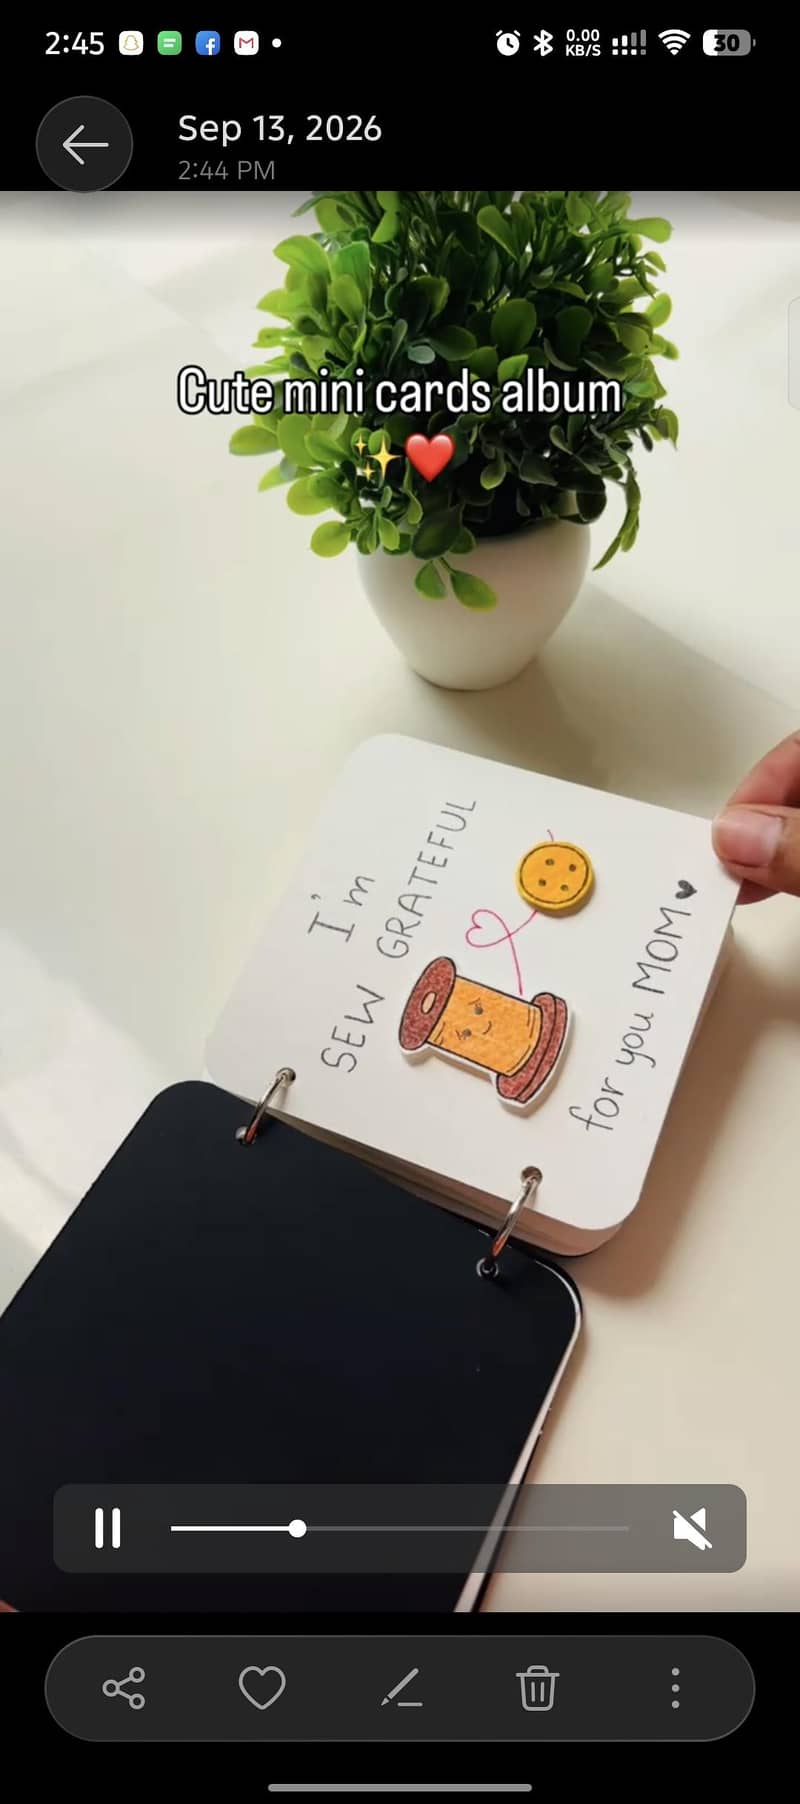 2:45
0.00
KB/S
30
Sep 13, 2026
2:44 PM
Cute mini cards album
✨❤️
I'm
SEW GRATEFUL
for you MOM♥